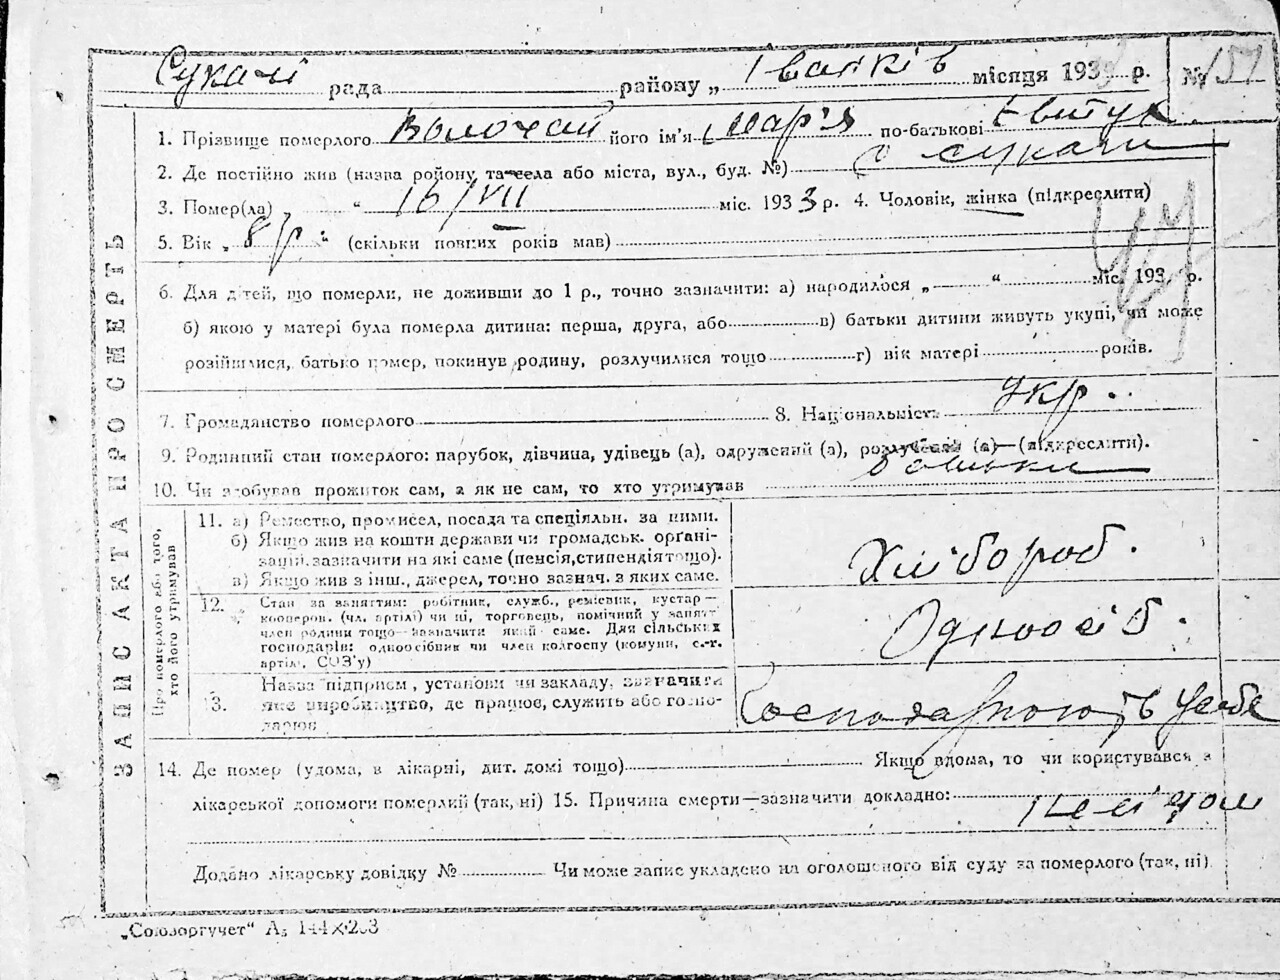 Сукачі рада Іванків району „ місяця 193 р. № 157
1. Прізвище померлого Волохай його ім'я Мар'я по-батькові
2. Де постійно жив (назва району та села або міста, вул., буд. №) с Сукачи
3. Помер(ла) „ 16/VII міс. 1933 р. 4. Чоловік, жінка (підкреслити)
5. Вік „8 р“ (скільки повних років мав)
6. Для дітей, що померли, не доживши до 1 р., точно зазначити: а) народилося „ “ міс. 193 р.
б) якою у матері була померла дитина: перша, друга, або в) батьки дитини живуть укупі, чи може
розійшлися, батько помер, покинув родину, розлучилися тощо г) вік матері років.
7. Громадянство померлого 8. Національність укр.
9. Родинний стан померлого: парубок, дівчина, удівець (а), одружений (а), розлучений (а) (підкреслити).
10. Чи здобував прожиток сам, а як не сам, то хто утримував батьки
ЗАПИС АКТА ПРО СМЕРТЬ
Про померлого або того, хто його утримував
11. а) Ремество, промисел, посада та спеціяльн. за ними.
б) Якщо жив на кошти держави чи громадськ. орґані-
зацій, зазначити на які саме (пенсія, стипендія тощо).
в) Якщо жив з інш., джерел, точно зазнач. з яких саме.
Хлібороб.
12. Стан за заняттям: робітник, служб., ремісник, кустар—
кооперов. (чл. артілі) чи ні, торговець, помічний у занятті
член родини тощо—зазначити який саме. Для сільських
господарів: одноосібник чи член колгоспу (комуни, с.-г.
артілі, СОЗ'у)
Одноосіб.
13. Назва підприєм, установи чи закладу, зазначити
яке виробництво, де працює, служить або госпо-
дарює
14. Де помер (удома, в лікарні, дит. домі тощо) Якщо вдома, то чи користувався з
лікарської допомоги померлий (так, ні) 15. Причина смерти—зазначити докладно:
Додано лікарську довідку № Чи може запис укладено на оголошеного від суду за померлого (так, ні).
„Союзоргучет“ А₅ 144×203